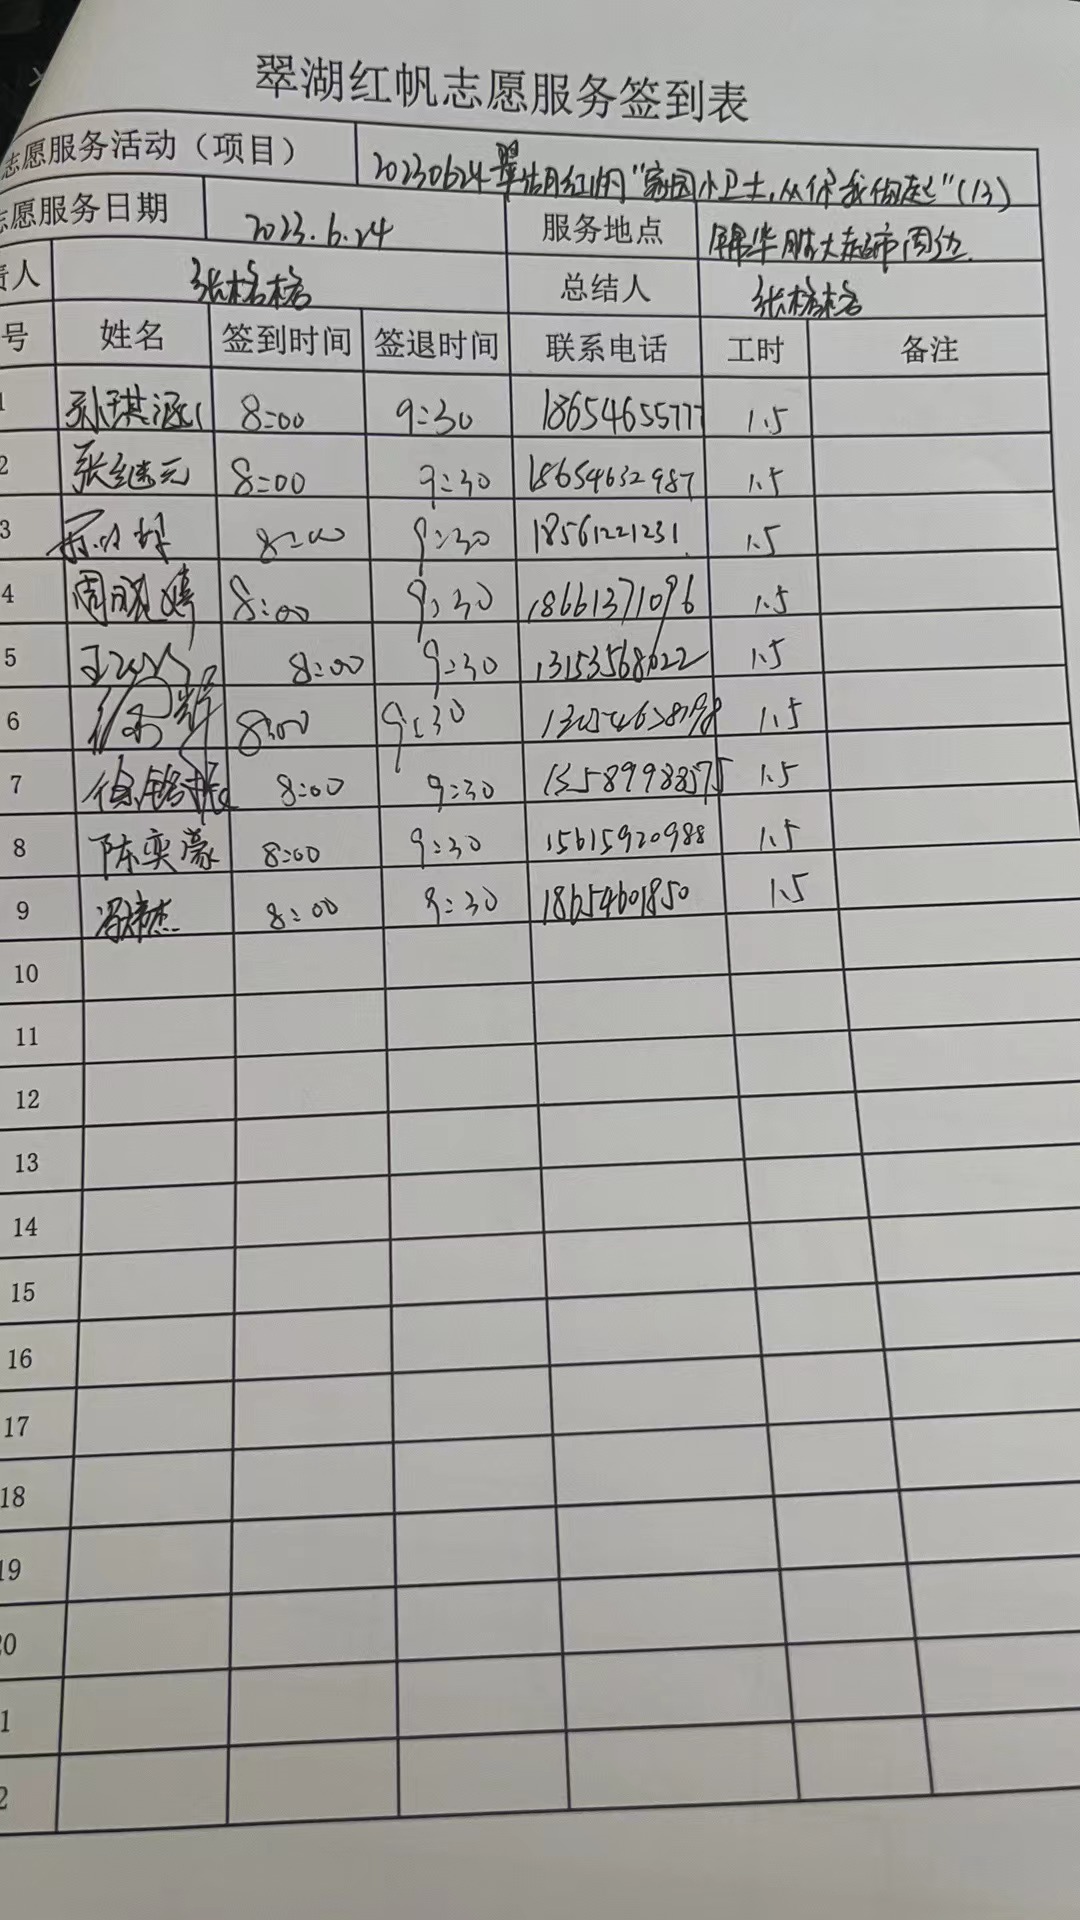 翠湖红帆志愿服务签到表
志愿服务活动（项目） 20230624翠湖红帆“家园小卫士，从你我做起”（13）
志愿服务日期 2023.6.24 服务地点 锦华胜大超市周边
责人 张格格 总结人 张格格
号 姓名 签到时间 签退时间 联系电话 工时 备注
1 孙琪涵 8:00 9:30 18654655777 1.5
2 张继元 8:00 9:30 18654632987 1.5
3 8:00 9:30 18561221231 1.5
4 周晓婷 8:00 9:30 18661371096 1.5
5 8:00 9:30 13153568622 1.5
6 8:00 9:30 1.5
7 8:00 9:30 13589988575 1.5
8 陈奕濛 8:00 9:30 15615920988 1.5
9 8:00 9:30 18654601850 1.5
10
11
12
13
14
15
16
17
18
19
20
1
2